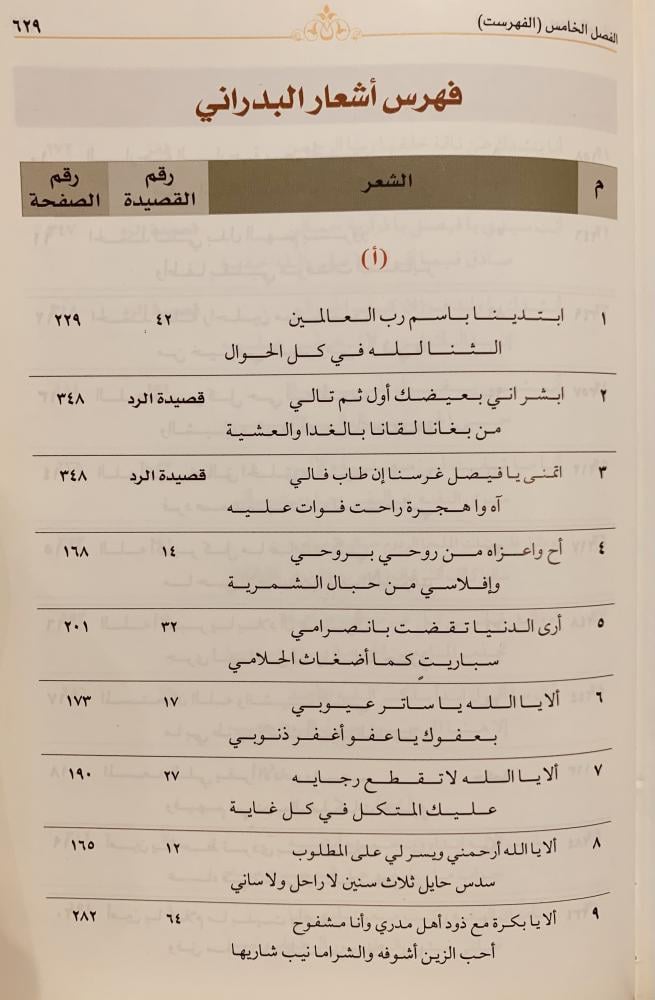 الفصل الخامس (الفهرست) ٦٢٩
فهرس أشعار البدراني
م الشعر رقم القصيدة رقم الصفحة
(أ)
١ ابتدينا باسم رب العالمين ٤٢ ٢٢٩
الثنا لله في كل الحوال
٢ ابشر اني بعيضك أول ثم تالي قصيدة الرد ٣٤٨
من بغانا لقانا بالغدا والعشية
٣ اتمنى يا فيصل غرسنا إن طاب فالي قصيدة الرد ٣٤٨
آه وا هجرة راحت فوات عليه
٤ أح واعزاه من روحي بروحي ١٤ ١٦٨
وإفلاسي من حبال الشمرية
٥ أرى الدنيا تقضت بانصرامي ٣٢ ٢٠١
سباريتٍ كما أضغاث الحلامي
٦ ألا يا الله يا ساتر عيوبي ١٧ ١٧٣
بعفوك يا عفو أغفر ذنوبي
٧ ألا يا الله لا تقطع رجايه ٢٧ ١٩٠
عليك المتكل في كل غاية
٨ ألا يا الله أرحمني ويسر لي على المطلوب ١٢ ١٦٥
سدس حايل ثلاث سنين لا راحل ولا ساني
٩ ألا يا بكرة مع ذود أهل مدري وأنا مشفوح ٦٤ ٢٨٢
أحب الزين أشوفه والشراما نيب شاريها